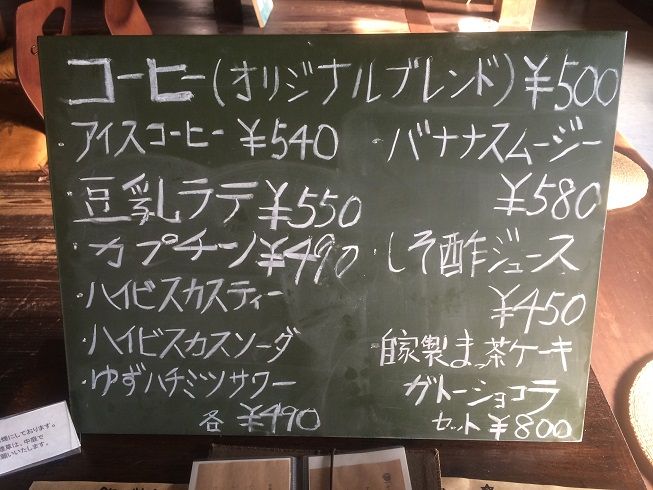 コーヒー(オリジナルブレンド)¥500
・アイスコーヒー ¥540
・豆乳ラテ ¥550
・カプチーノ ¥490
・ハイビスカスティー
・ハイビスカスソーダ
・ゆずハチミツサワー
各 ¥490
・バナナスムージー
¥580
・しそ酢ジュース
¥450
自家製まっ茶ケーキ
ガトーショコラ
セット ¥800
願いいたします。